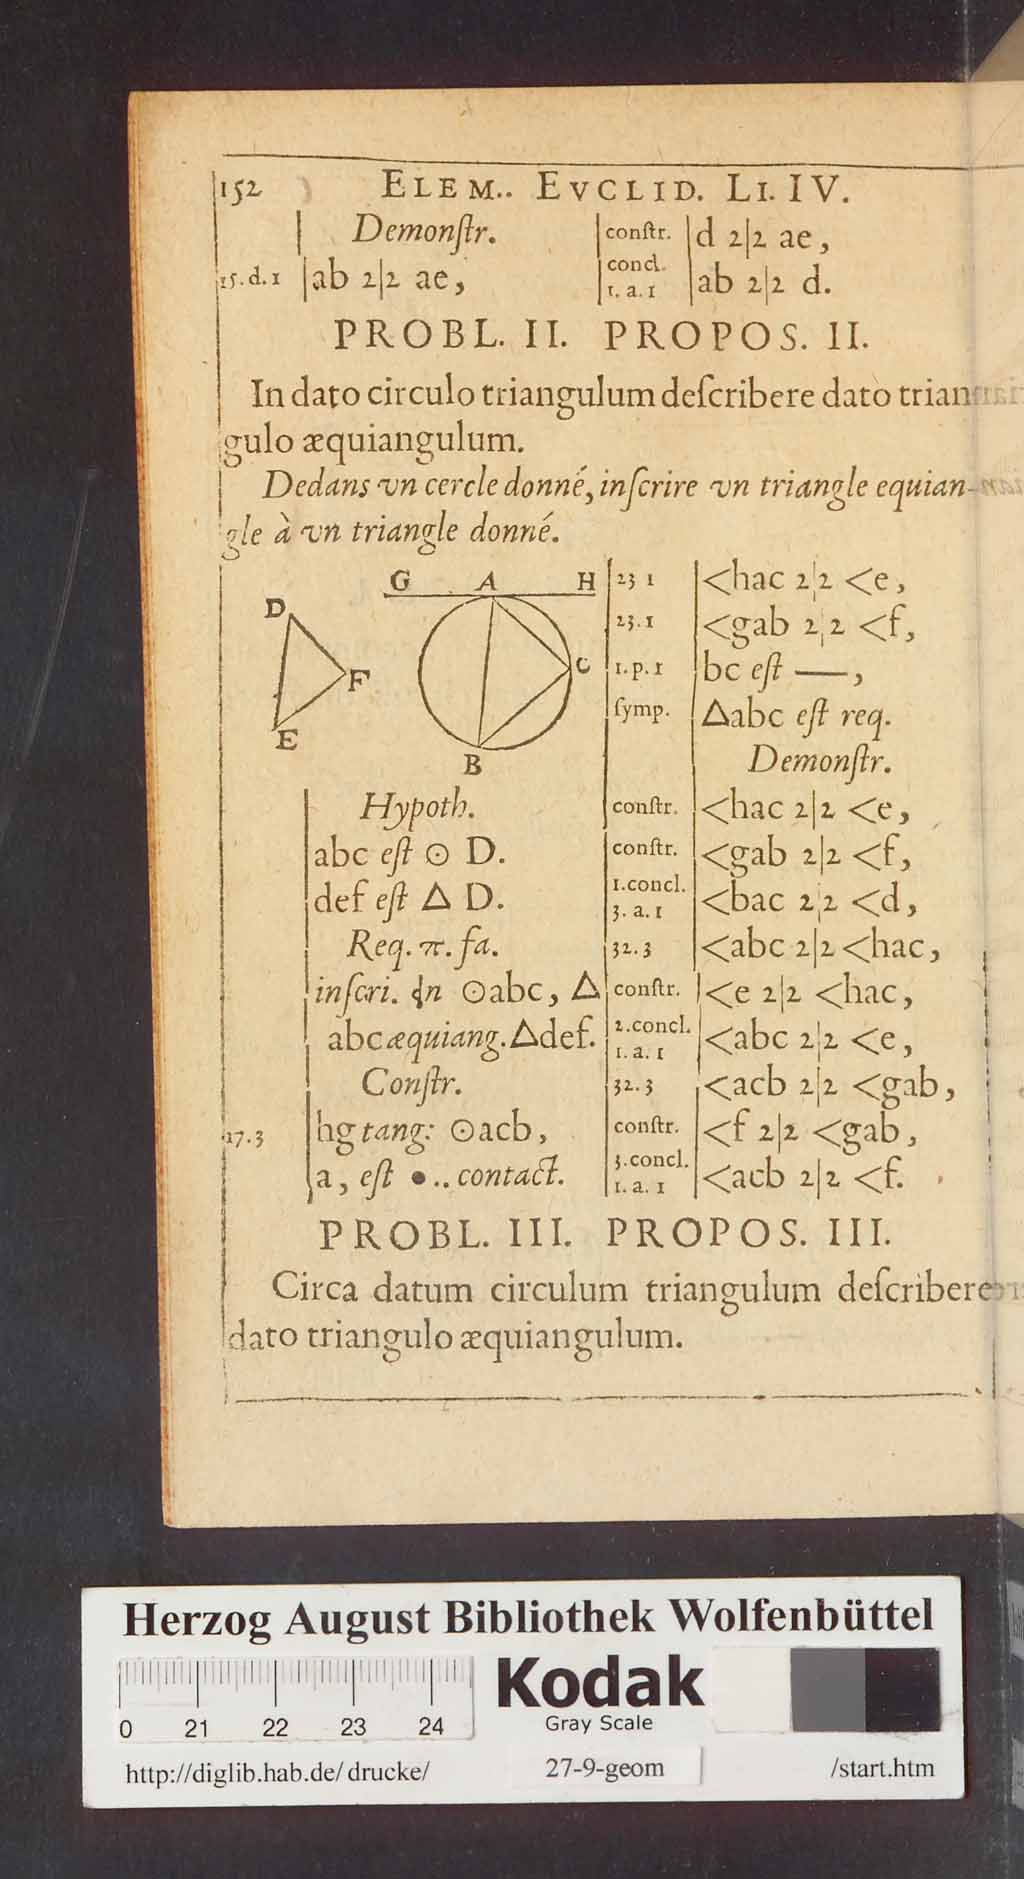 152 ELEM.. EVCLID. LI. IV.
Demonſtr.
15.d.1 ab 2|2 ae,
conſtr. d 2|2 ae,
concl.
1.a.1 ab 2|2 d.
PROBL. II. PROPOS. II.
In dato circulo triangulum deſcribere dato trian
gulo æquiangulum.
Dedans vn cercle donné, inſcrire vn triangle equian-
gle à vn triangle donné.
G A H
D
F
C
E
B
Hypoth.
abc eſt ⊙ D.
def eſt △ D.
Req. π. fa.
inſcri. in ⊙abc, △
abc æquiang. △def.
Conſtr.
17.3 hg tang: ⊙acb,
a, eſt •.. contact.
23 1 <hac 2|2 <e,
23.1 <gab 2|2 <f,
1.p.1 bc eſt —,
ſymp. △abc eſt req.
Demonſtr.
conſtr. <hac 2|2 <e,
conſtr. <gab 2|2 <f,
1.concl.
3.a.1 <bac 2|2 <d,
32.3 <abc 2|2 <hac,
conſtr. <e 2|2 <hac,
2.concl.
1.a.1 <abc 2|2 <e,
32.3 <acb 2|2 <gab,
conſtr. <f 2|2 <gab,
3.concl.
1.a.1 <acb 2|2 <f.
PROBL. III. PROPOS. III.
Circa datum circulum triangulum deſcribere
dato triangulo æquiangulum.
Herzog August Bibliothek Wolfenbüttel
0 21 22 23 24
Kodak
Gray Scale
http://diglib.hab.de/drucke/ 27-9-geom /start.htm